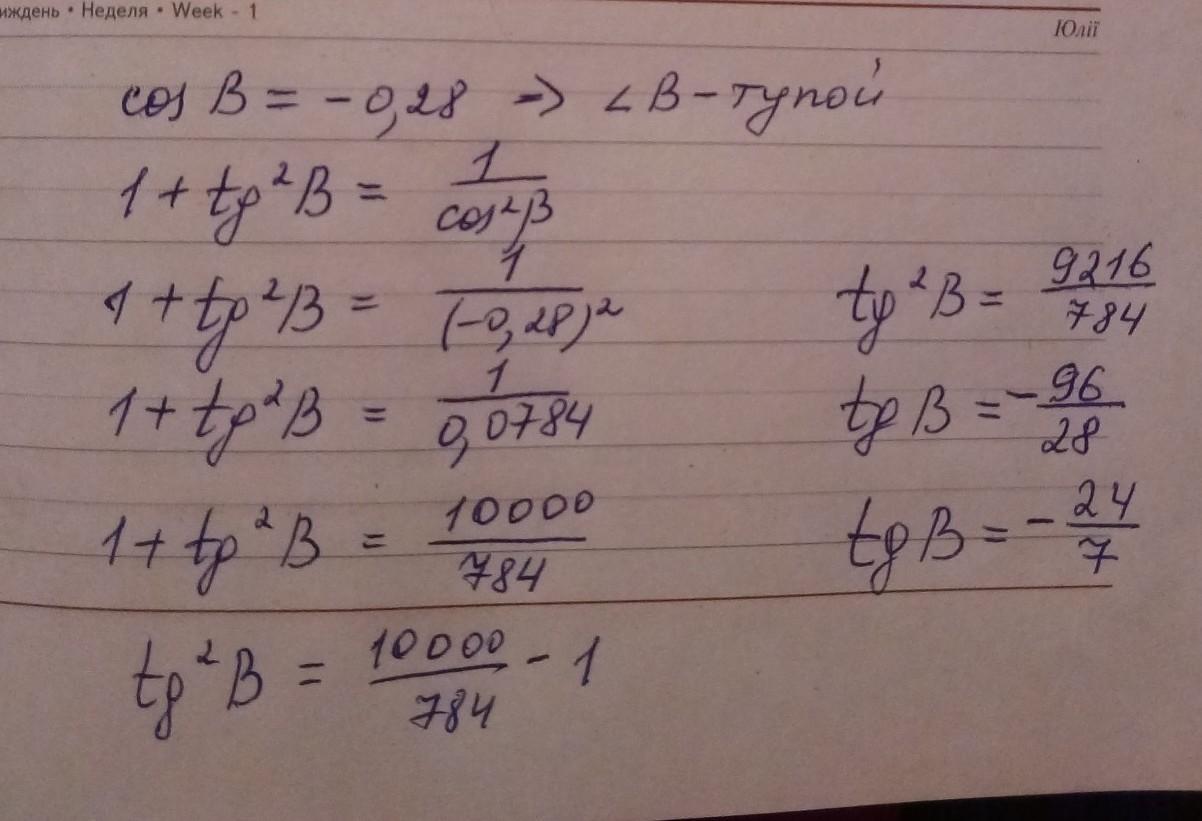 иждень • Неделя • Week - 1
Юлії
cos B = -0,28 => ∠B - тупой
1 + tg²B = 1/cos²β
1 + tg²B = 1/(-0,28)²
1 + tg²B = 1/0,0784
1 + tg²B = 10000/784
tg²B = 10000/784 - 1
tg²B = 9216/784
tg B = -96/28
tg B = -24/7